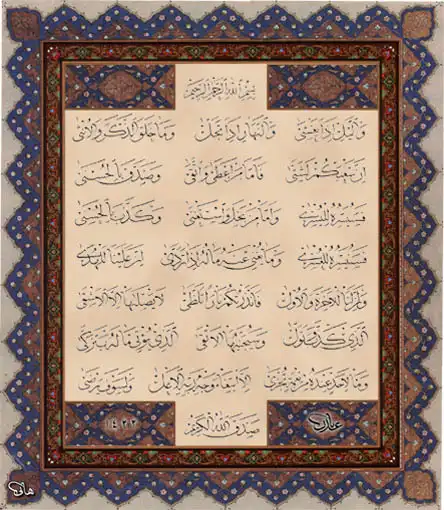 بسم الله الرحمن الرحيم
والليل إذا يغشى والنهار إذا تجلى وما خلق الذكر والأنثى
إن سعيكم لشتى فأما من أعطى واتقى وصدق بالحسنى
فسنيسره لليسرى وأما من بخل واستغنى وكذب بالحسنى
فسنيسره للعسرى وما يغني عنه ماله إذا تردى إن علينا للهدى
وإن لنا للآخرة والأولى فأنذرتكم نارا تلظى لا يصلاها إلا الأشقى
الذي كذب وتولى وسيجنبها الأتقى الذي يؤتي ماله يتزكى
وما لأحد عنده من نعمة تجزى إلا ابتغاء وجه ربه الأعلى ولسوف يرضى
صدق الله الكريم
هاني